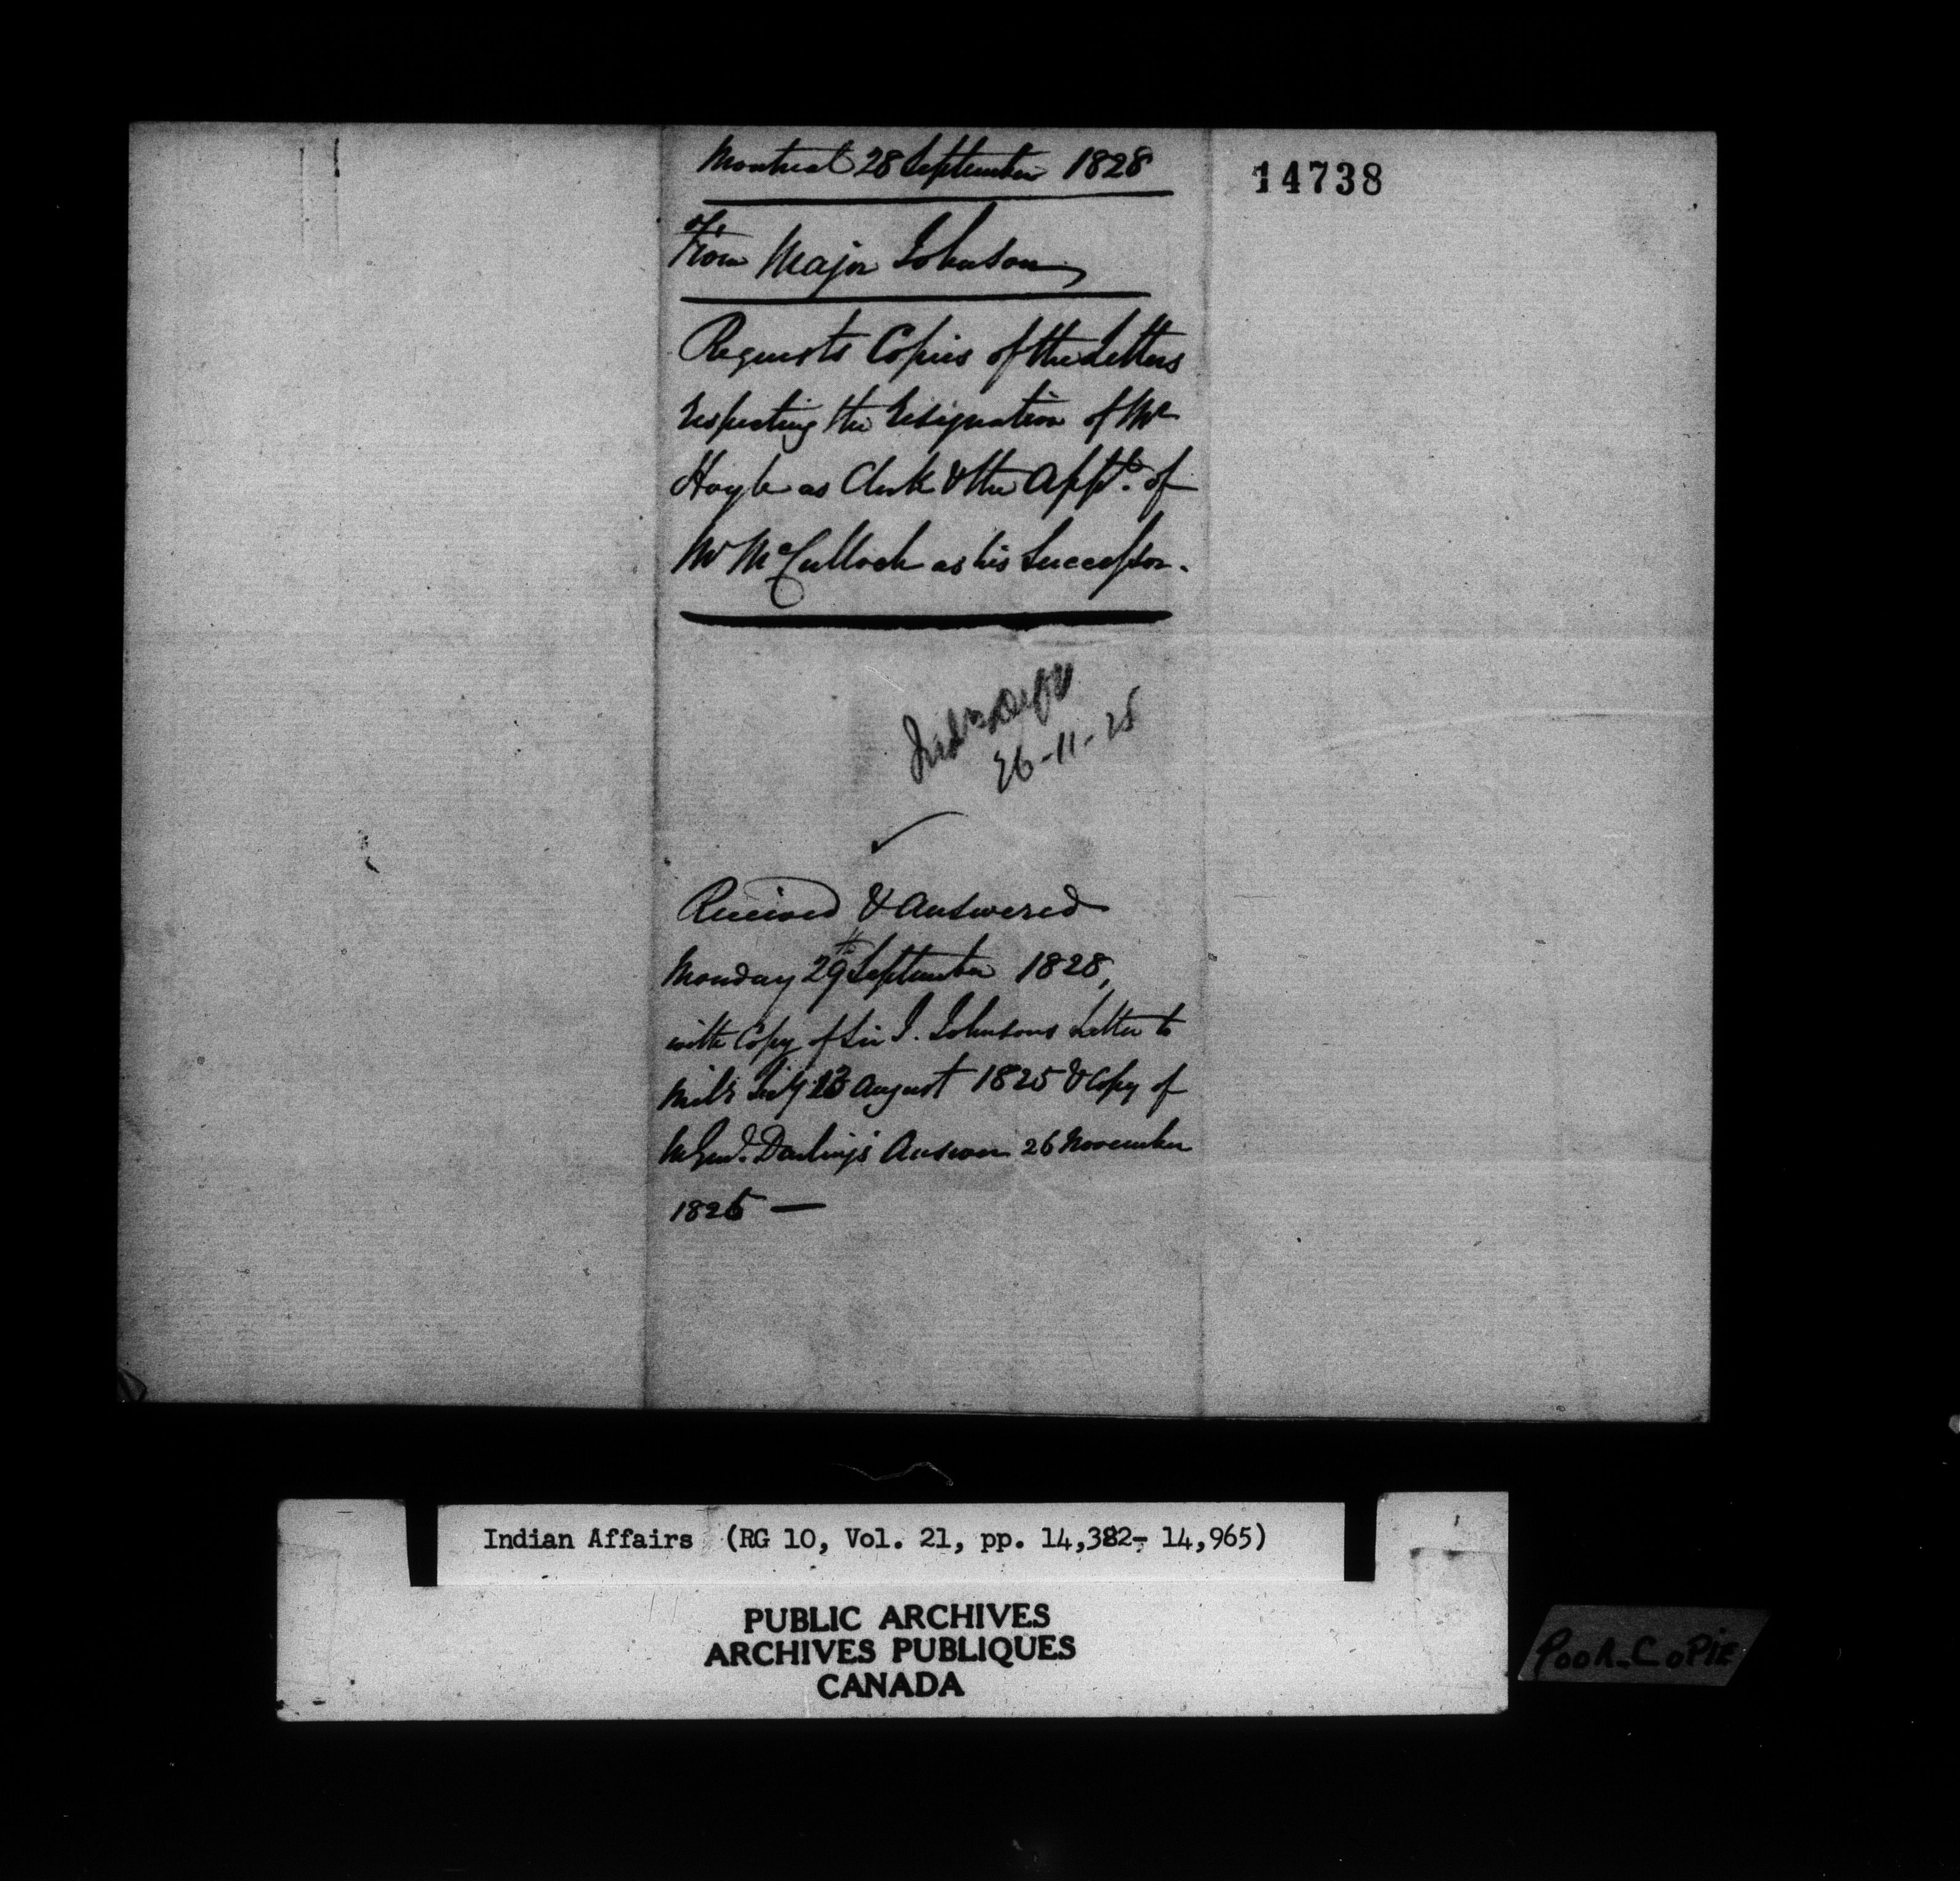 Montreal 28 September 1828
14738
From Major Johnson
Requests Copies of the Letters
respecting the resignation of Mr
Hoyle as Clerk & the Appt. of
Mr McCulloch as his Successor.
26-11-25
Received & answered
Monday 29th September 1828,
with Copy of Sir J. Johnsons Letter to
August 1825 & Copy of
Darling's Answer 26 November
1825 —
Indian Affairs (RG 10, Vol. 21, pp. 14,382- 14,965)
PUBLIC ARCHIVES
ARCHIVES PUBLIQUES
CANADA
POOR COPIE